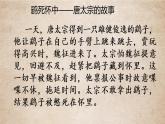 鹞死怀中——唐太宗的故事
一天，唐太宗得到一只雄健俊逸的鹞子，他
让鹞子在自己的手臂上跳来跳去，赏玩得高兴
时，魏征进来了。太宗怕魏征提意见，回避不
及，赶紧把鹞子藏到怀里。这一切早被魏征看
到，他禀报公事时故意喋喋不休，拖延时间。
太宗不敢拿出鹞子，结果鹞子被憋死在怀里。